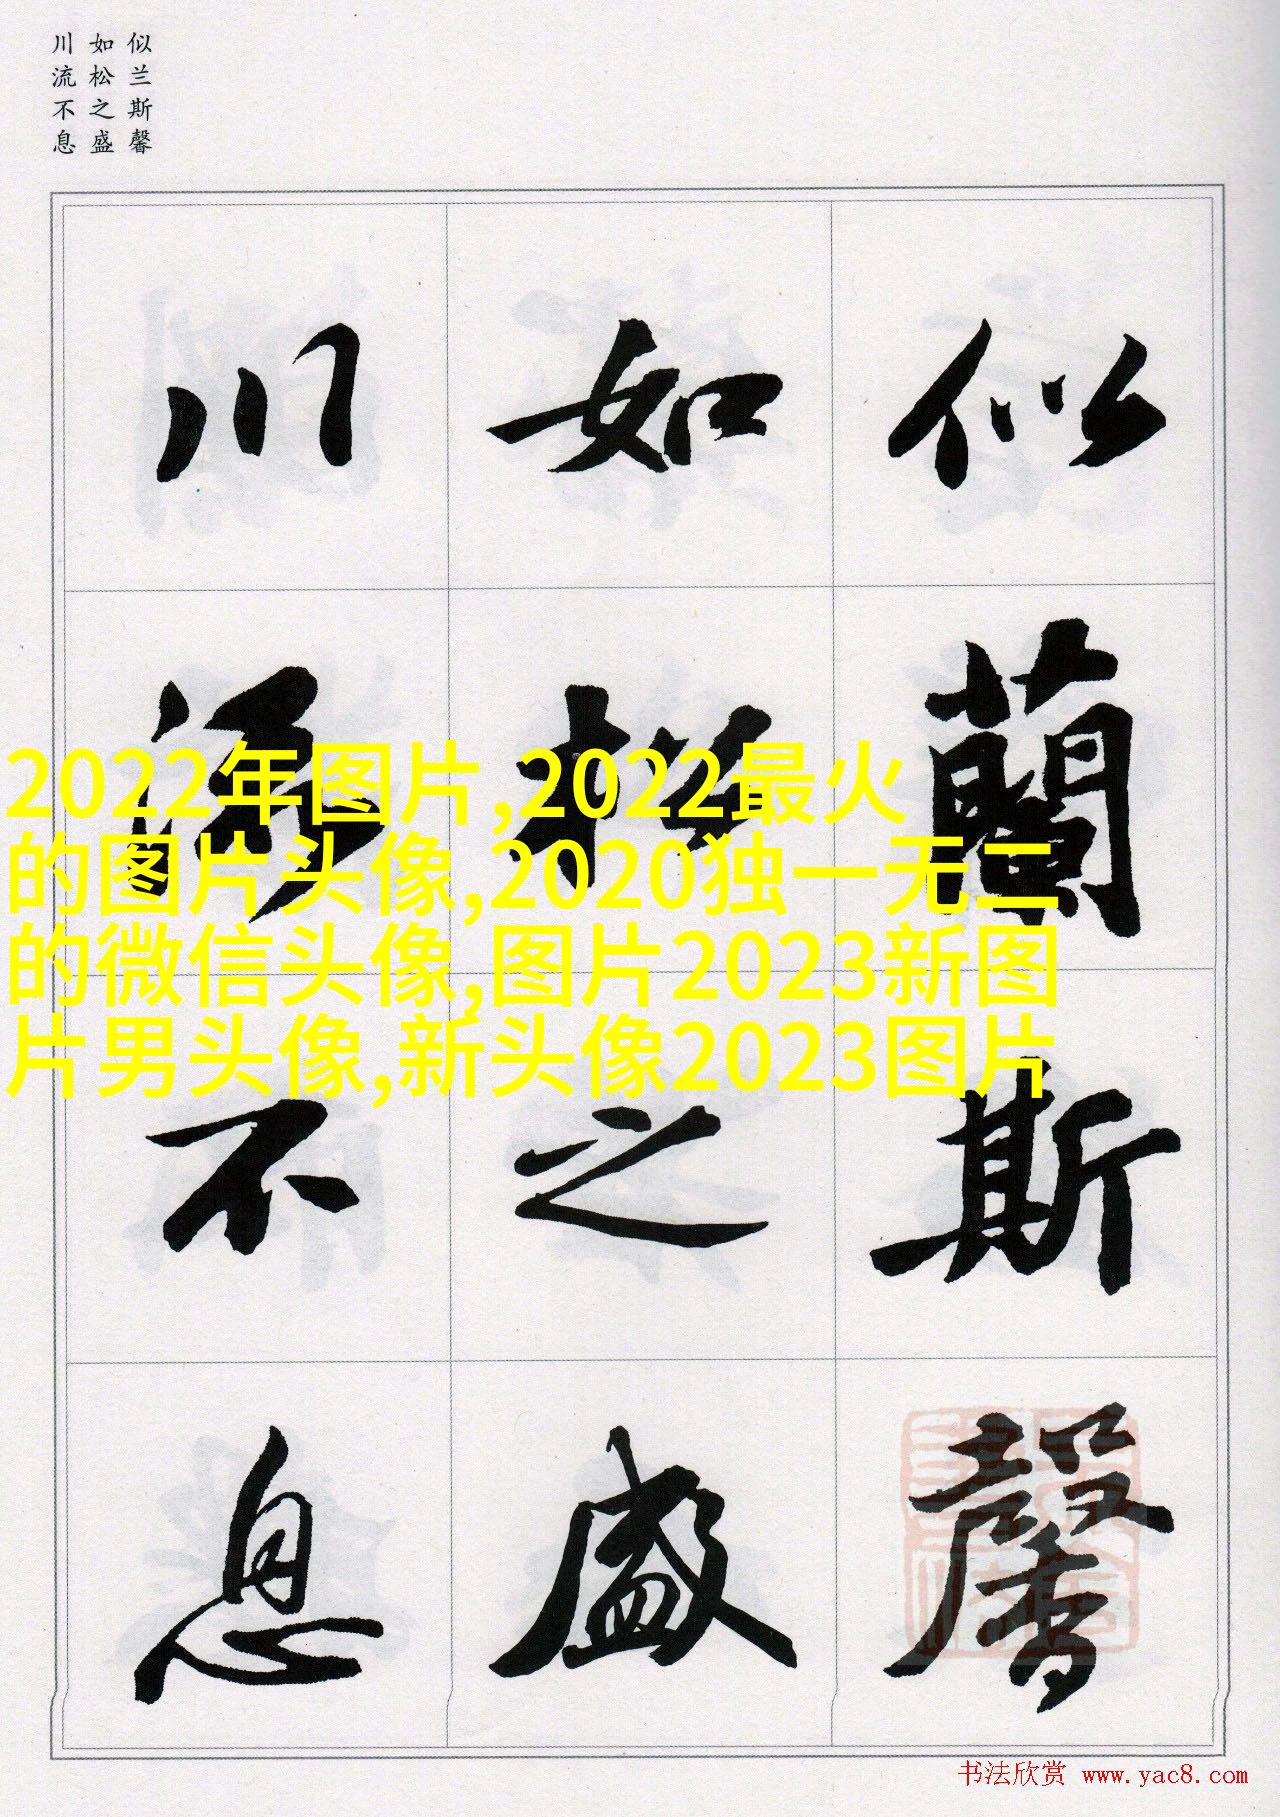 似兰斯馨
如松之盛
川流不息
似蘭斯馨
如松之盛
川流不息
2022年图片,2022最火
的图片头像,2020独一无二
的微信头像,图片2023新图
片男头像,新头像2023图片
书法欣赏 www.yac8.com